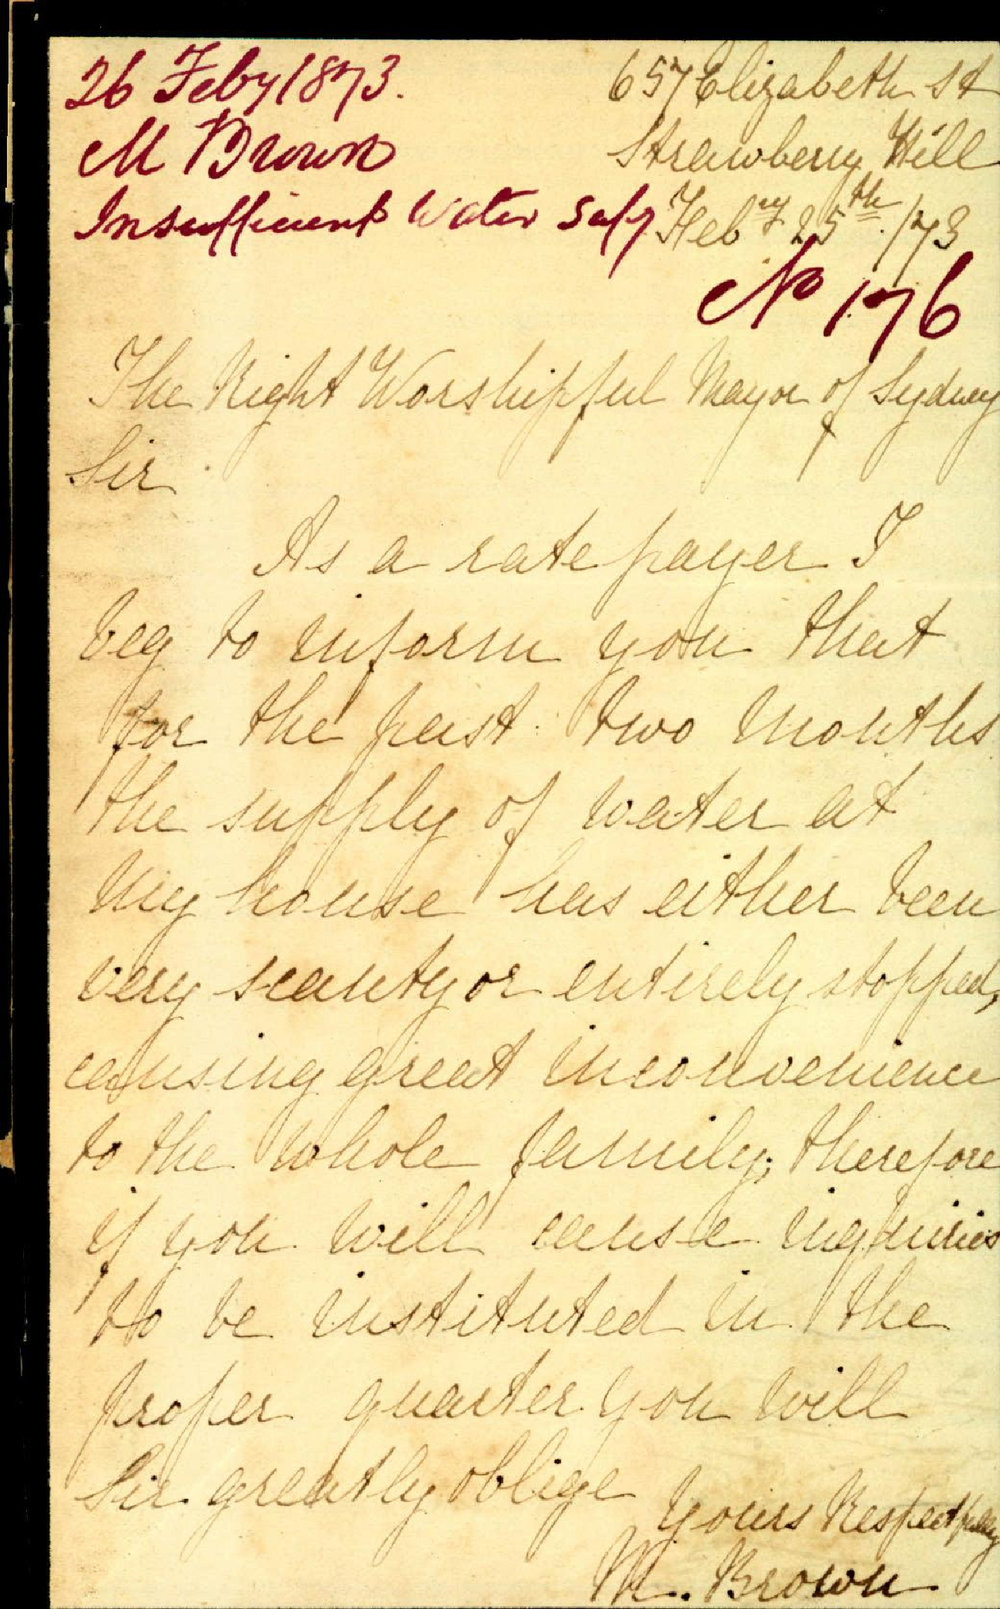 26 Feby 1873.
M Brown
Insufficient Water Sup'y
657 Elizabeth St
Strawberry Hill
Feb'y 25th /73
No 176
The Right Worshipful Mayor of Sydney
Sir
As a rate payer I
beg to inform you that
for the past two months
the supply of water at
my house has either been
very scanty or entirely stopped,
causing great inconvenience
to the whole family; therefore
if you will cause inquiries
to be instituted in the
proper quarter you will
Sir greatly oblige
Yours Respectfully
M. Brown